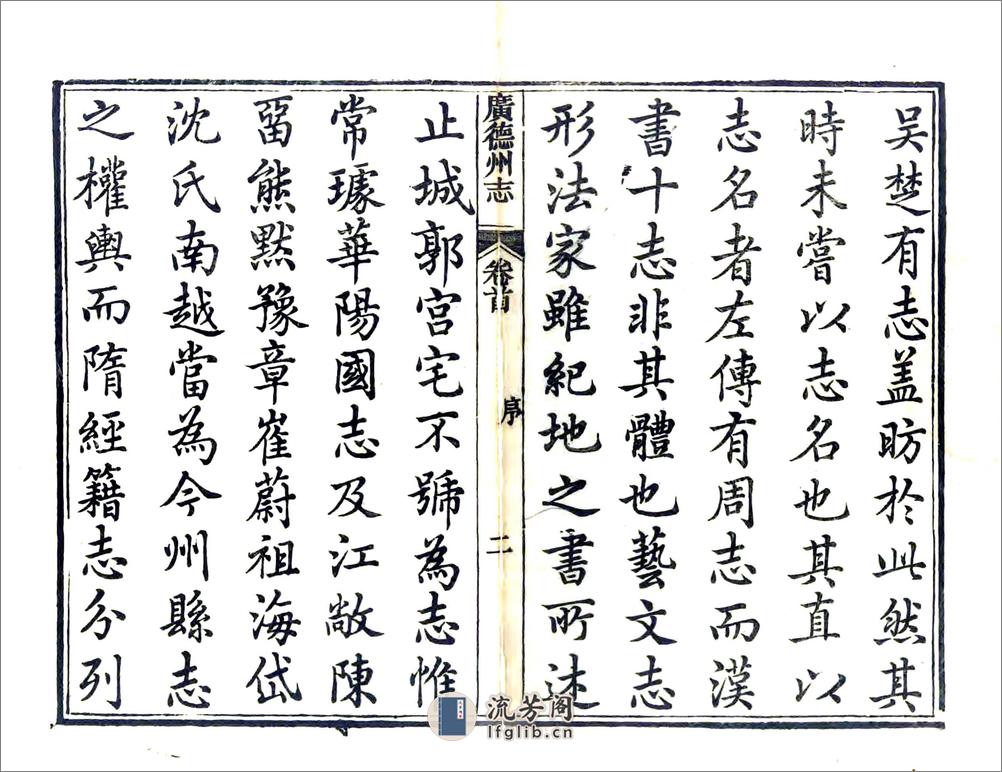 吳楚有志盖昉於此然其
時未嘗以志名也其直以
志名者左傳有周志而漢
書十志非其體也藝文志
形法家雖紀地之書所述
廣德州志
卷首
序
二
止城郭宫宅不號為志惟
常璩華陽國志及江敞陳
留熊黙豫章崔蔚祖海岱
沈氏南越當為今州縣志
之權輿而隋經籍志分列
流芳阁
lfglib.cn